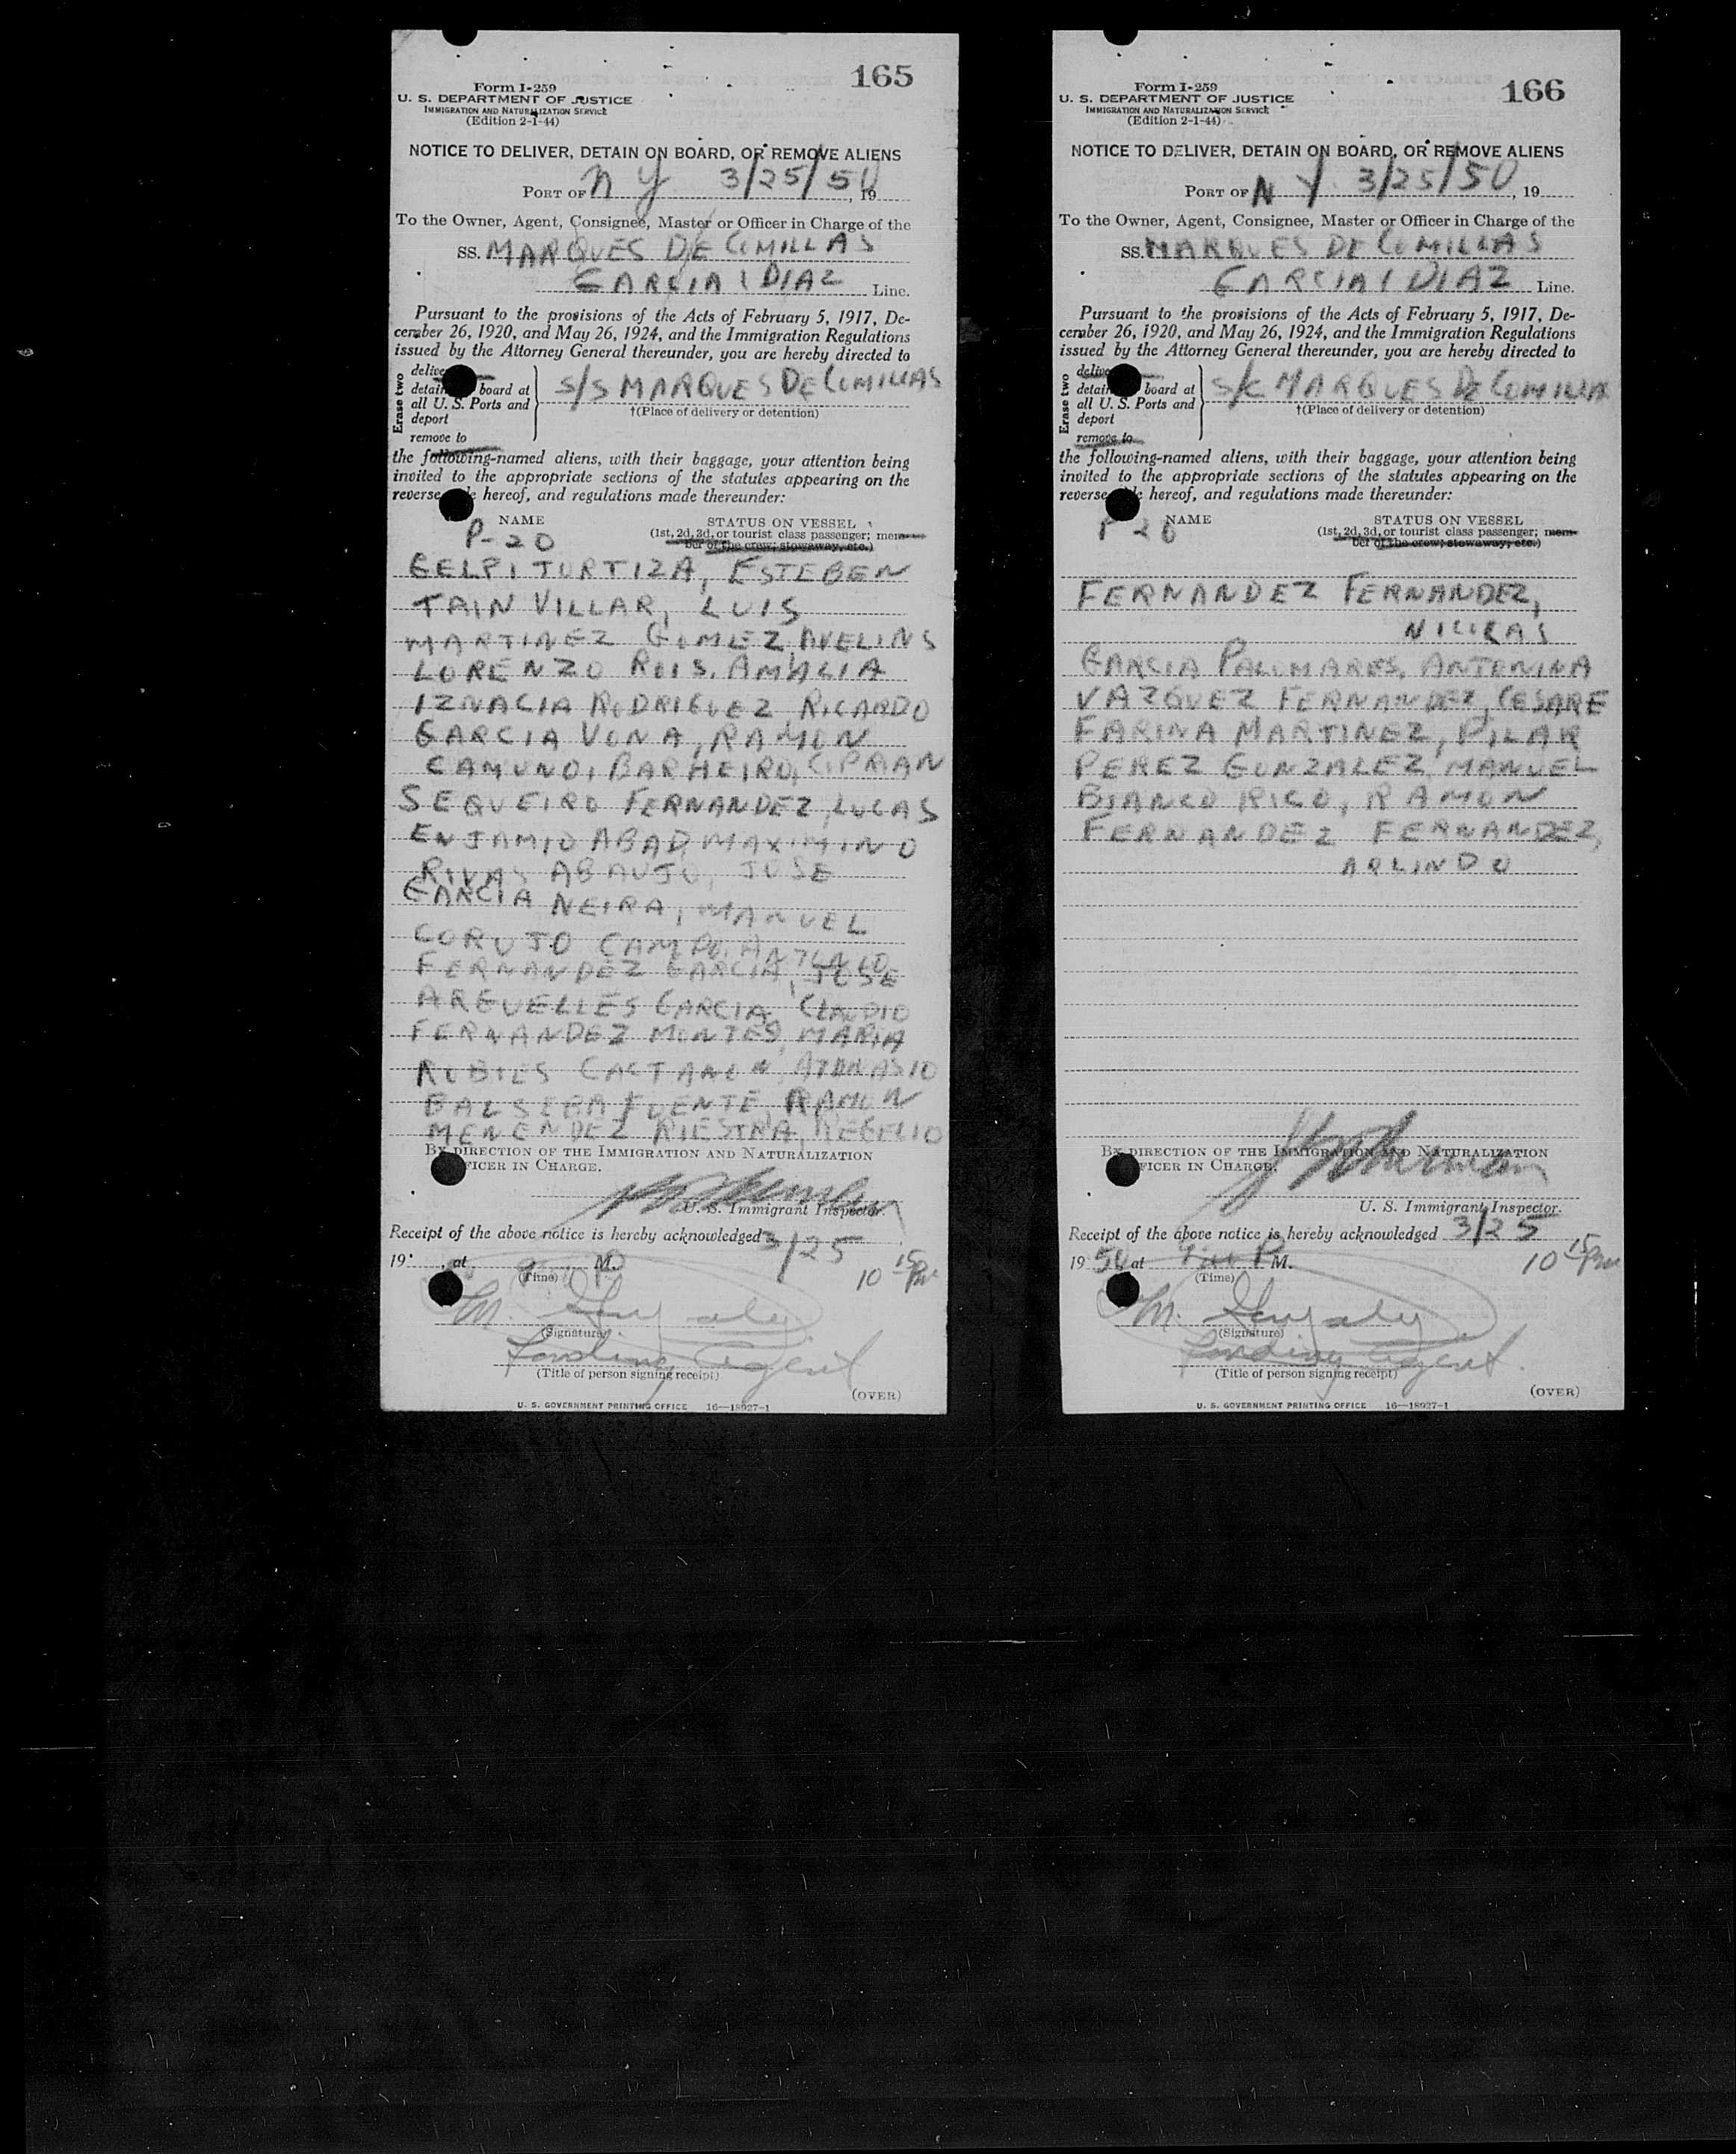 165
Form I-259
U. S. DEPARTMENT OF JUSTICE
IMMIGRATION AND NATURALIZATION SERVICE
(Edition 2-1-44)
NOTICE TO DELIVER, DETAIN ON BOARD, OR REMOVE ALIENS
PORT OF N Y 3/25/50, 19
To the Owner, Agent, Consignee, Master or Officer in Charge of the
SS. MARQUES DE COMILLAS
GARCIA & DIAZ Line.
Pursuant to the provisions of the Acts of February 5, 1917, De-
cember 26, 1920, and May 26, 1924, and the Immigration Regulations
issued by the Attorney General thereunder, you are hereby directed to
Erase two
delive
detain board at
all U. S. Ports and
deport
remove to
S/S MARQUES DE COMILLAS
†(Place of delivery or detention)
the following-named aliens, with their baggage, your attention being
invited to the appropriate sections of the statutes appearing on the
reverse hereof, and regulations made thereunder:
NAME STATUS ON VESSEL
P-20 (1st, 2d, 3d, or tourist class passenger; mem-
ber of the crew; stowaway, etc.)
GELPI TURTIZA, ESTEBEN
TAIN VILLAR, LUIS
MARTINEZ GOMEZ, AVELINS
LORENZO ROIS, AMALIA
IZNACIA RODRIGUEZ, RICARDO
GARCIA VONA, RAMON
CAMUNO, BARHEIRO, CIPRIAN
SEQUEIRO FERNANDEZ, LUCAS
ENJAMIO ABAD, MAXIMINO
RIVAS ABAUJO, JOSE
GARCIA NEIRA, MANUEL
CORUJO CAMPO, ANTONIO
FERNANDEZ GARCIA, JOSE
ARGUELLES GARCIA, CLAUDIO
FERNANDEZ MONTES, MARIA
ROBLES CASTANON, ATANASIO
BALSERA FUENTE, RAMON
MENENDEZ RIESTRA, ROGELIO
BY DIRECTION OF THE IMMIGRATION AND NATURALIZATION
FICER IN CHARGE.
U. S. Immigrant Inspector.
Receipt of the above notice is hereby acknowledged 3/25
19 , at P M. 10 15 Pm
(Time)
M. Gonzalez
(Signature)
Landing Agent
(Title of person signing receipt)
(OVER)
U. S. GOVERNMENT PRINTING OFFICE 16—18927-1
166
Form I-259
U. S. DEPARTMENT OF JUSTICE
IMMIGRATION AND NATURALIZATION SERVICE
(Edition 2-1-44)
NOTICE TO DELIVER, DETAIN ON BOARD, OR REMOVE ALIENS
PORT OF N Y. 3/25/50, 19
To the Owner, Agent, Consignee, Master or Officer in Charge of the
SS. MARQUES DE COMILLAS
GARCIA & DIAZ Line.
Pursuant to the provisions of the Acts of February 5, 1917, De-
cember 26, 1920, and May 26, 1924, and the Immigration Regulations
issued by the Attorney General thereunder, you are hereby directed to
Erase two
delive
detain board at
all U. S. Ports and
deport
remove to
S/S MARQUES DE COMILLAS
†(Place of delivery or detention)
the following-named aliens, with their baggage, your attention being
invited to the appropriate sections of the statutes appearing on the
reverse hereof, and regulations made thereunder:
NAME STATUS ON VESSEL
P-20 (1st, 2d, 3d, or tourist class passenger; mem-
ber of the crew; stowaway, etc.)
FERNANDEZ FERNANDEZ,
NICOLAS
GARCIA PALOMARES, ANTONINA
VAZQUEZ FERNANDEZ, CESARE
FARINA MARTINEZ, PILAR
PEREZ GONZALEZ, MANUEL
BIANCO RICO, RAMON
FERNANDEZ FERNANDEZ,
ARLINDO
BY DIRECTION OF THE IMMIGRATION AND NATURALIZATION
FICER IN CHARGE.
U. S. Immigrant Inspector.
Receipt of the above notice is hereby acknowledged 3/25
19 50 at P M. 10 15 Pm
(Time)
M. Gonzalez
(Signature)
Landing Agent.
(Title of person signing receipt)
(OVER)
U. S. GOVERNMENT PRINTING OFFICE 16—18927-1